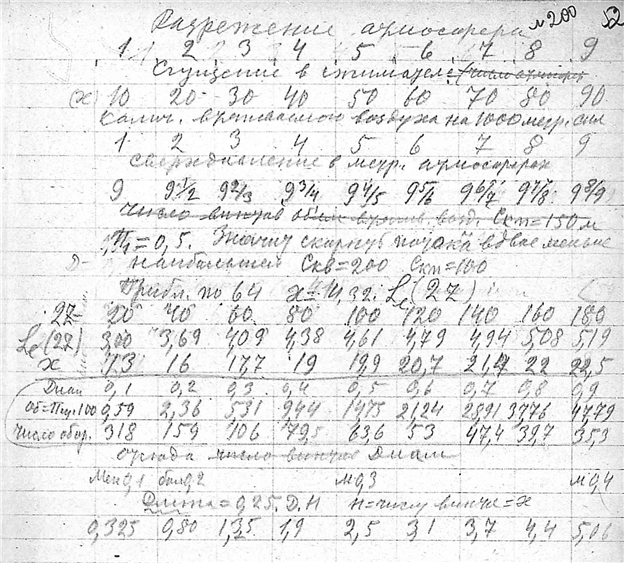 Разрежение атмосфера №200 52
1 2 3 4 5 6 7 8 9
Сгущение в сжимателе
(x) 10 20 30 40 50 60 70 80 90
Колич. воздуха на 1000 метр.
1 2 3 4 5 6 7 8 9
Сверхдавление в метр. атмосферах
9 9 1/2 9 2/3 9 3/4 9 4/5 9 5/6 9 6/7 9 7/8 9 8/9
Число винтов Скп=150м
П1=0,5. Значит скорость потока вдвое меньше
наибольшей Скв=200 Скп=100
Прибл. по 64 x=4,32. Le(2z)
2z 20 40 60 80 100 120 140 160 180
Le(2z) 300 3,69 409 4,38 4,61 4,79 4,94 508 519
x 13 16 17,7 19 19,9 20,7 21,4 22 22,5
Диам 0,1 0,2 0,3 0,4 0,5 0,6 0,7 0,8 0,9
0,59 2,36 531 944 1475 2124 2891 3776 4779
Число обор. 318 159 106 79,5 63,6 53 47,4 39,7 35,3
отсюда число винтов Диам
Мен 0,1 бол 0,2 м 0,3 м 0,4
Длина=0,25.Д.Н Н=числу винто=x
0,325 0,80 1,35 1,9 2,5 3,1 3,7 4,4 5,06